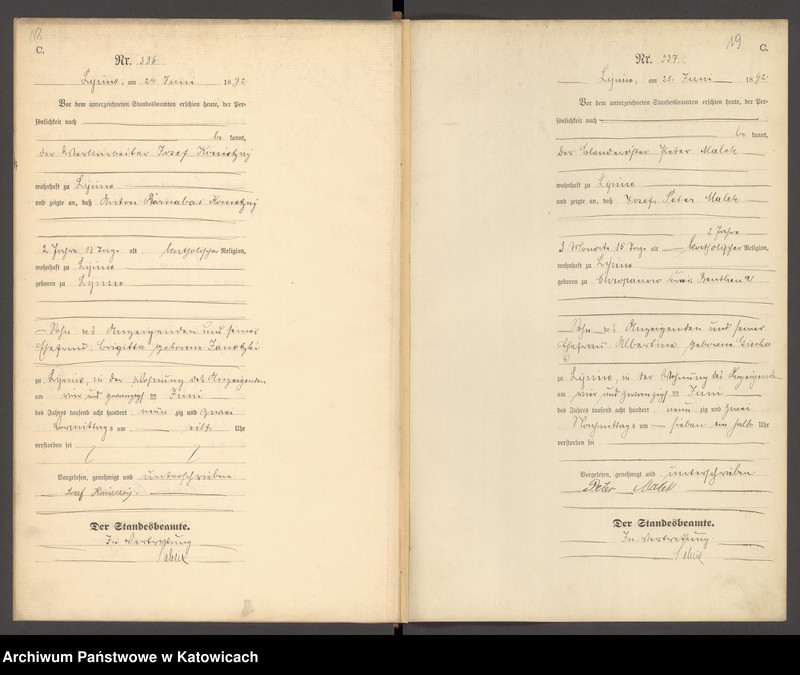 18
C.
Nr. 336.
Lipine, am 24. Juni 1892
Vor dem unterzeichneten Standesbeamten erschien heute, der Per-
sönlichkeit nach
be kannt,
der Werkarbeiter Josef
wohnhaft zu Lipine
und zeigte an, daß Anton Barnabas
2 Jahre 13 Tage alt katholischer Religion,
wohnhaft zu Lipine
geboren zu Lipine
Sohn des Anzeigenden und seiner
Ehefrau Brigitta geborene
zu Lipine, in der Wohnung des Anzeigenden
am vier und zwanzigsten Juni
des Jahres tausend acht hundert neun zig und zwei
Vormittags um eilf Uhr
verstorben sei
Vorgelesen, genehmigt und unterschrieben
Josef
Der Standesbeamte.
In Vertretung
19
C.
Nr. 337.
Lipine, am 25. Juni 1892
Vor dem unterzeichneten Standesbeamten erschien heute, der Per-
sönlichkeit nach
be kannt,
der Peter Malek
wohnhaft zu Lipine
und zeigte an, daß Josef Peter Malek
2 Jahre
3 Monate 15 Tage alt katholischer Religion,
wohnhaft zu Lipine
geboren zu Chropaczow Kreis Beuthen
Sohn des Anzeigenden und seiner
Ehefrau Albertine geborene
zu Lipine, in der Wohnung des Anzeigenden
am vier und zwanzigsten Juni
des Jahres tausend acht hundert neun zig und zwei
Nachmittags um sieben ein halb Uhr
verstorben sei
Vorgelesen, genehmigt und unterschrieben
Peter Malek
Der Standesbeamte.
In Vertretung
Archiwum Państwowe w Katowicach